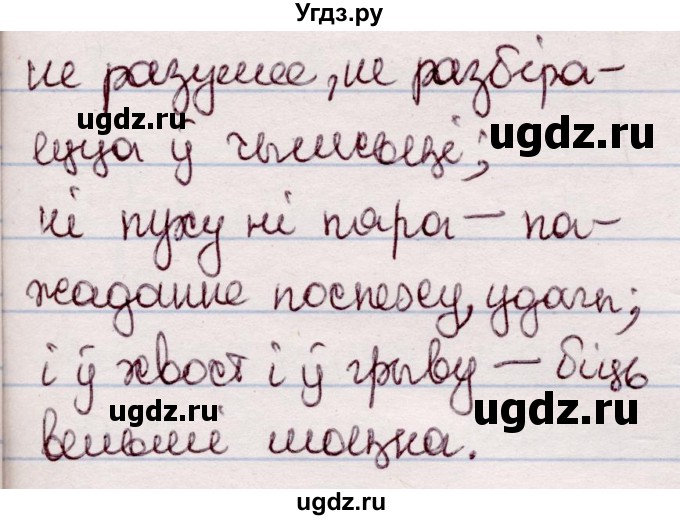 Угдз.ру
не разумее, не разбіра-
ецца ў чымсьці;
ні пуху ні пара – па-
жаданне поспеху, удачы;
і ў хвост і ў грыву – біць
вельмі моцна.
ugdz.ru
ugdz.ru
ugdz.ru
ugdz.ru
ugdz.ru